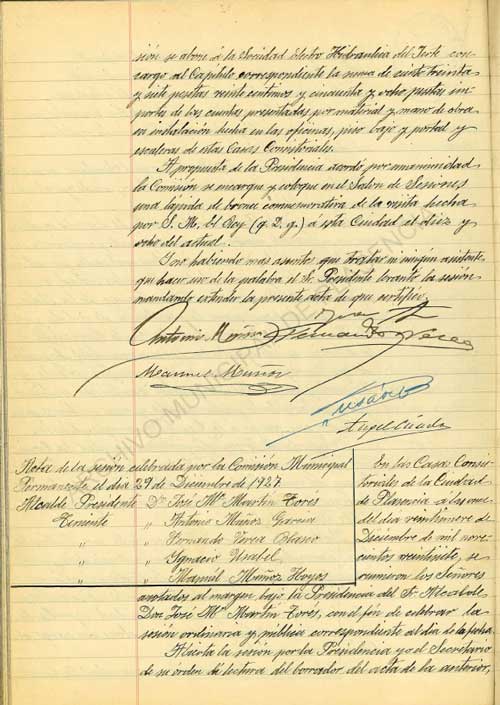 sión se abone á la Sociedad Electro Hidraulica del Jerte con
cargo al Capítulo correspondiente la suma de ciento treinta
y siete pesetas veinte centimos y cincuenta y ocho pesetas im
portes de las cuentas presentadas por material y mano de obra
en instalación hecha en las oficinas, piso bajo y portal y
escaleras de estas Casas Consistoriales.
A propuesta de la Presidencia acordó por unanimidad
la Comisión se encargue y coloque en el Salon de Sesiones
una lápida de bronce conmemorativa de la visita hecha
por S. M. El Rey (q. D. g.) á esta Ciudad el diez y
ocho del actual.
Y no habiendo mas asuntos que tratar ni ningun asistente
que hacer uso de la palabra el Sr. Presidente levantó la sesión
mandando extender la presente acta de que certifico.
Antonio Muñoz Fernando Verea
Manuel Munoz
Usábel
ARCHIVO MUNICIPAL DE PLASENCIA
Acta de la sesión celebrada por la Comisión Municipal
Permanente el dia 29 de Diciembre de 1927.
Alcalde Presidente Dn José Mª Martín Torés
Teniente " Antonio Muñoz Garcia
" " Fernando Verea Blasco
" " Ignacio Usabel
" " Manuel Muñoz Hoyos
En las Casas Consis-
toriales de la Ciudad
de Plasencia á las once
del dia veintinueve de
Diciembre de mil nove
cientos veintisiete, se
reunieron los Señores
anotados al margen bajo la Presidencia del Sr Alcalde
Don José Mª Martín Torés, con el fin de celebrar la
sesión ordinaria y pública correspondiente al dia de la fecha.
Abierta la sesión por la Presidencia yo el Secretario
de su órden dí lectura del borrador del acta de la anterior,